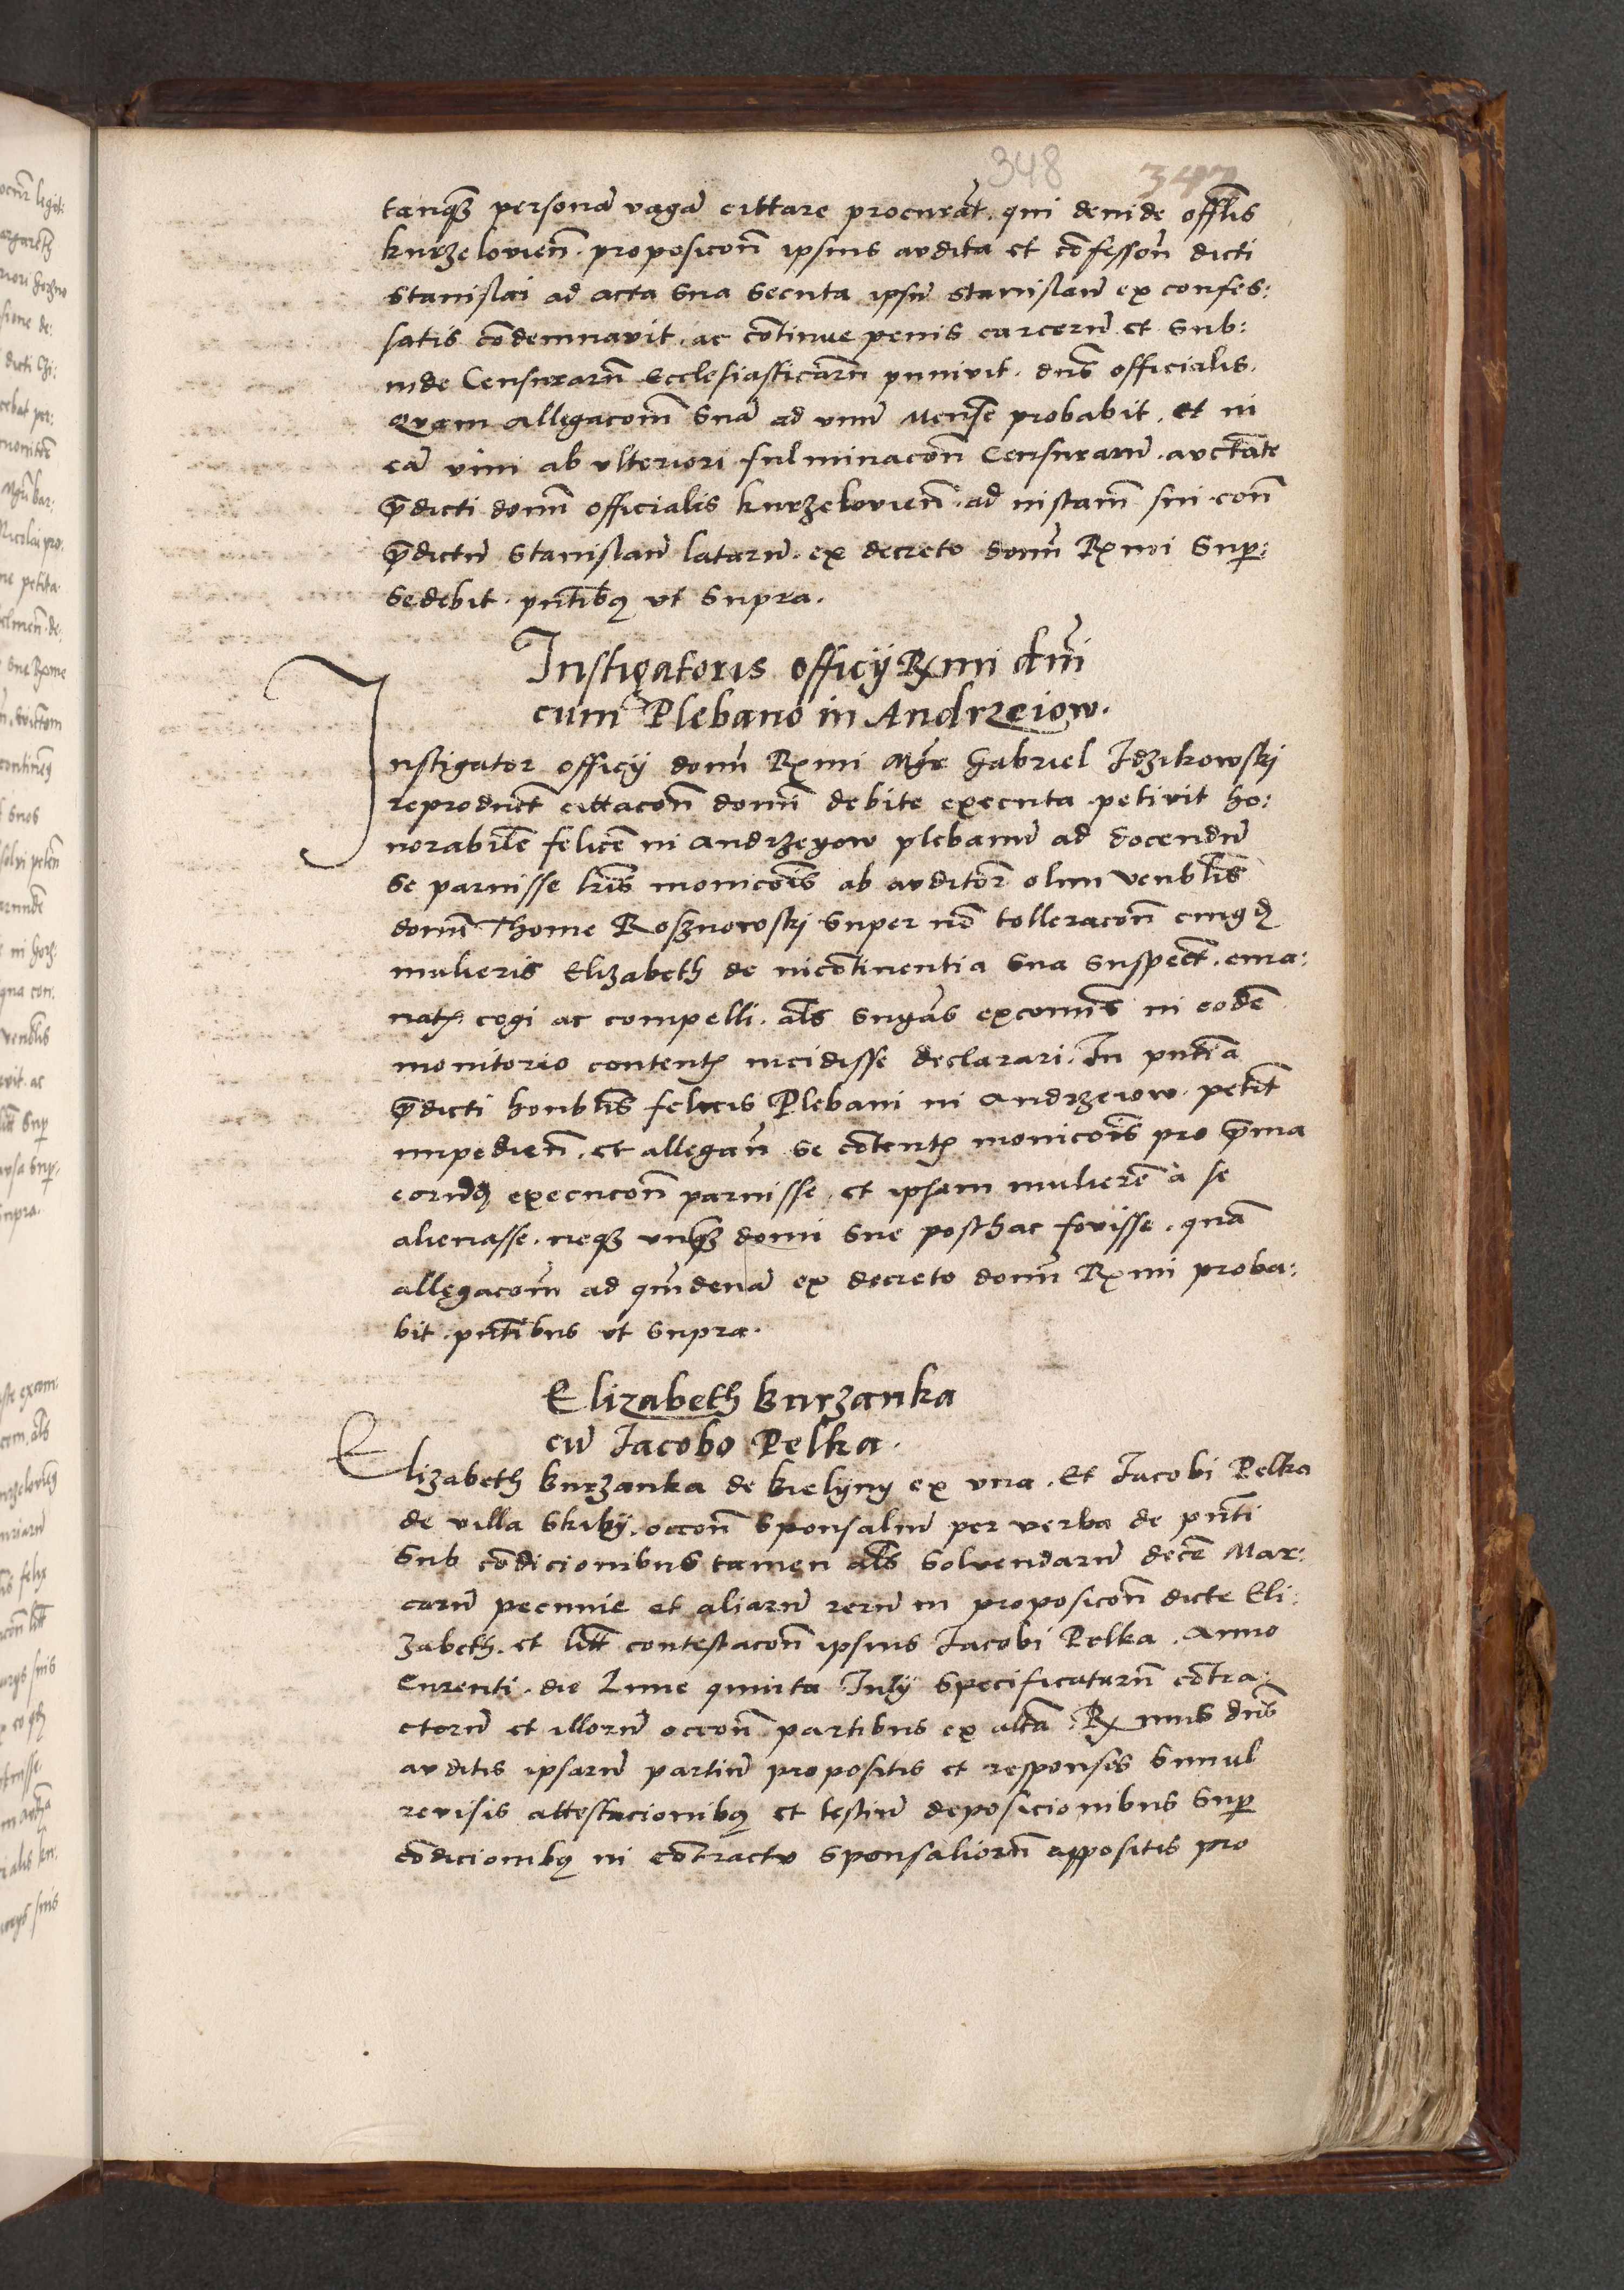 348 347
tanq̃ꝫ personã vagã cittare procurãt. qui deinde offłis
kurzelovieñ. proposicoñ ipsius audita et cõfessioñ dicti
Stanislai ad acta sua secuta ipsũ Stanislaũ ex confes:
satis cõdemnavit. ac cõtinue penis carcerũ et sub:
inde Censurarũ Ecclesiasticarũ punivit. dñs officialis.
Quam allegacoñm suã ad unũ Mensẽ probabit. et in
eã vim ab ulteriori fulminacoñ Censurarũ. auctãte
p̃dicti domĩ officialis kurzelovieñ. ad instañ sui coñ
p̃dictũ Stanislaũ latarũ. ex decreto domĩ Rxmi Sup:
sedebit. pñtibꝫ ut supra.
Instigatoris officij Rxmi dñi
cum Plebano in Andrzeiow.
Instigator officij domĩ Rxmi Mg̃r Gabriel Idzikowskj
reproduct cittacoñ domĩ debite executa petivit ho:
norabilẽ felicẽ in Andrzeyow plebanũ ad docendũ
se paruisse lr̃is monicoĩs ab auditor olim venbłis
domĩ Thome Rosznowskj super nõ tolleracoñ cuiusdã
mulieris Elizabeth de incõtinentia sua suspect. ema:
nat. cogi ac compelli. al̃s sñias excomĩs in eodẽ
monitorio content. incidisse declarari. In pñtia
p̃dicti honblis felicis Plebani in Andrzeiow. petit
impedieñ. et allegañ se cõtent. monicoĩs pro p̃ma
eorũdẽ execucoñ paruisse. et ipsam mulierẽ à se
alienasse. neqꝫ unq̃ꝫ domi sue posthac fovisse. quã
allegacoñm ad quindenã ex decreto domĩ Rxmi proba:
bit. pñtibus ut supra.
Elizabeth kurzanka
cũ Jacobo Pelka.
Elizabeth kurzanka de kielyny ex una. Et Jacobi Pelka
de villa Skiby. occoñ Sponsaliũ per verba de pñti
sub cõdicionibus tamen al̃s solvendarũ decẽ Mar:
carũ pecunie et aliarũ rerũ in proposicoñ dicte Eli:
zabeth. et litt contestacoñ ipsius Jacobi Pelka. Anno
Curenti. die Lune quinta Julij specificatarũ cõtra:
ctorũ et illorũ occoñ partibus ex altã. Rxmus dñs
auditis ipsarũ partiũ propositis et responsis simul
revisis attestacionibꝫ et testiũ deposicionibus sup
cõdicionibꝫ in cõtractu sponsaliorũ appositis pro